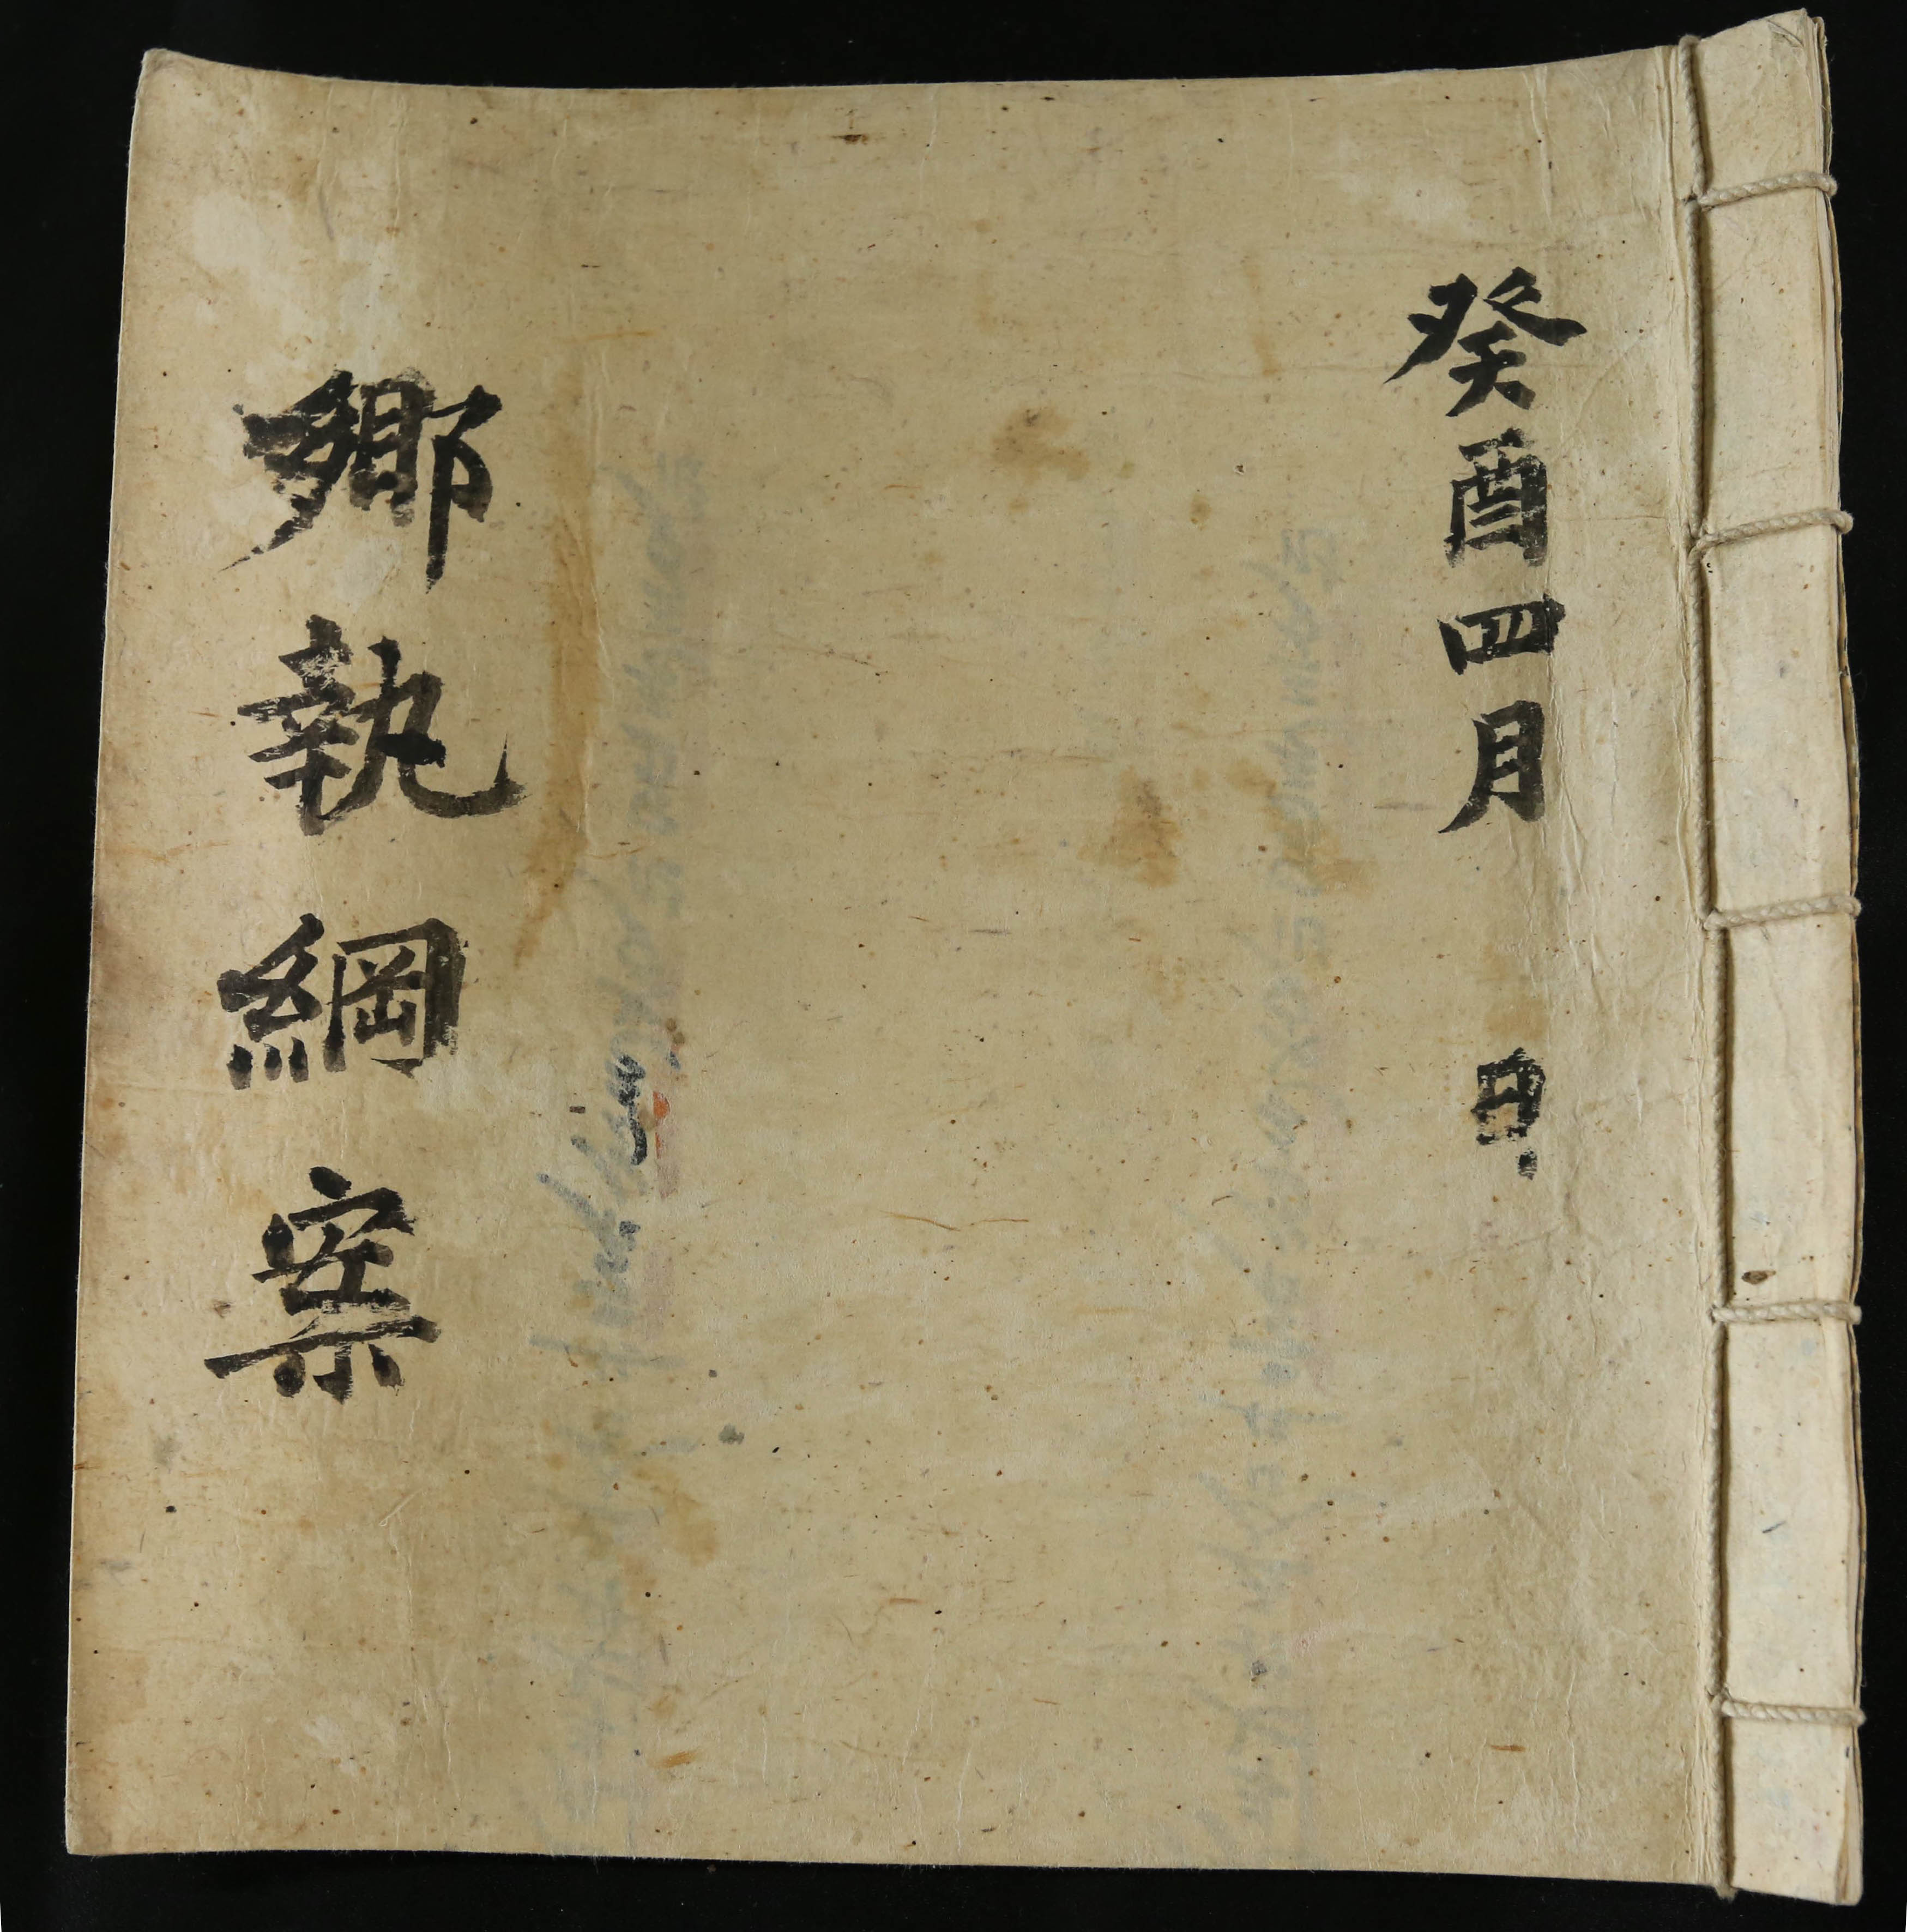 癸酉四月 日
鄕執綱案